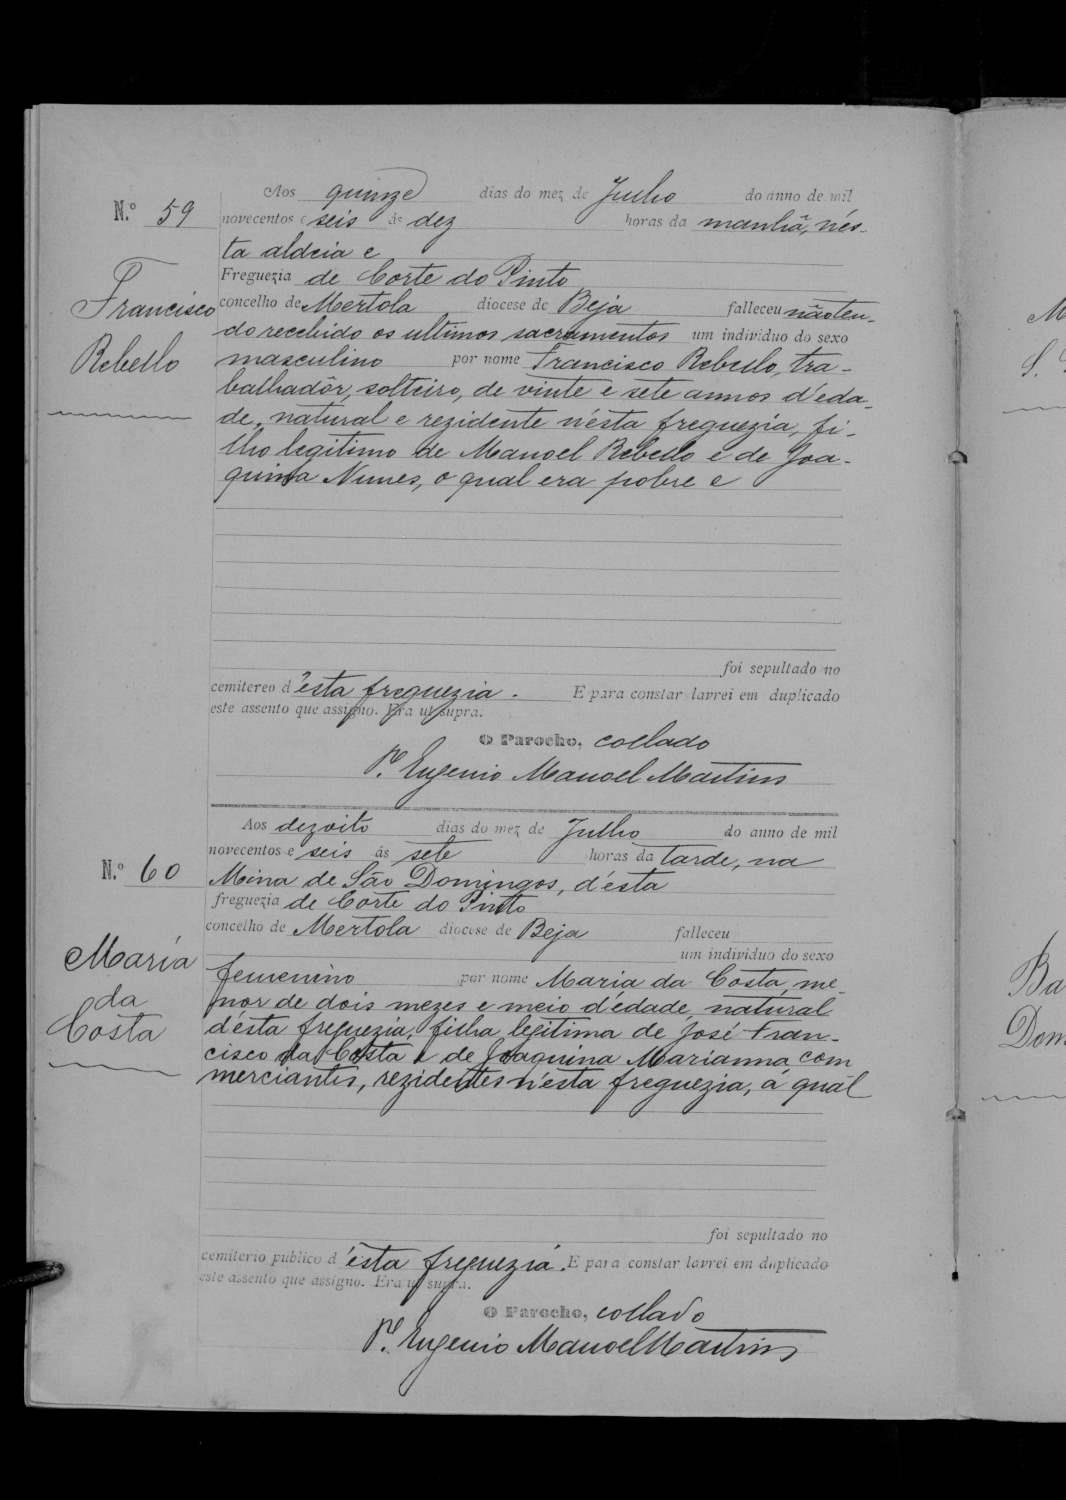 Aos quinze dias do mez de Julho do anno de mil
N.º 59
novecentos e seis ás dez horas da manhã, nés-
ta aldeia e
Freguezia de Corte do Pinto
Francisco
Rebello
concelho de Mertola diocese de Beja falleceu não ten-
do recebido os ultimos sacramentos um individuo do sexo
masculino por nome Francisco Rebello, tra-
balhadôr, solteiro, de vinte e sete annos d'éda-
de, natural e rezidente n'ésta freguezia, fi-
lho legitimo de Manoel Rebello e de Joa-
quina Nunes, o qual era pobre e
foi sepultado no
cemitereo d'ésta freguezia. E para constar lavrei em duplicado
este assento que assigno. Era ut supra.
O Parocho, collado
P.e Eugenio Manoel Martins
Aos dezoito dias do mez de Julho do anno de mil
novecentos e seis ás sete horas da tarde, na
N.º 60
Mina de São Domingos, d'ésta
freguezia de Corte do Pinto
concelho de Mertola diocese de Beja falleceu
um individuo do sexo
Maria
da
Costa
femenino por nome Maria da Costa, me-
nor de dois mezes e meio d'édade, natural
d'ésta freguezia, filha legitima de José Fran-
cisco da Costa e de Joaquina Marianna com
merciantes, rezidentes n'ésta freguezia, á quál
foi sepultado no
cemiterio publico d'ésta freguezia. E para constar lavrei em duplicado
este assento que assigno. Era ut supra.
O Parocho, collado
P.e Eugenio Manoel Martins
M
S.
Ba
Dom